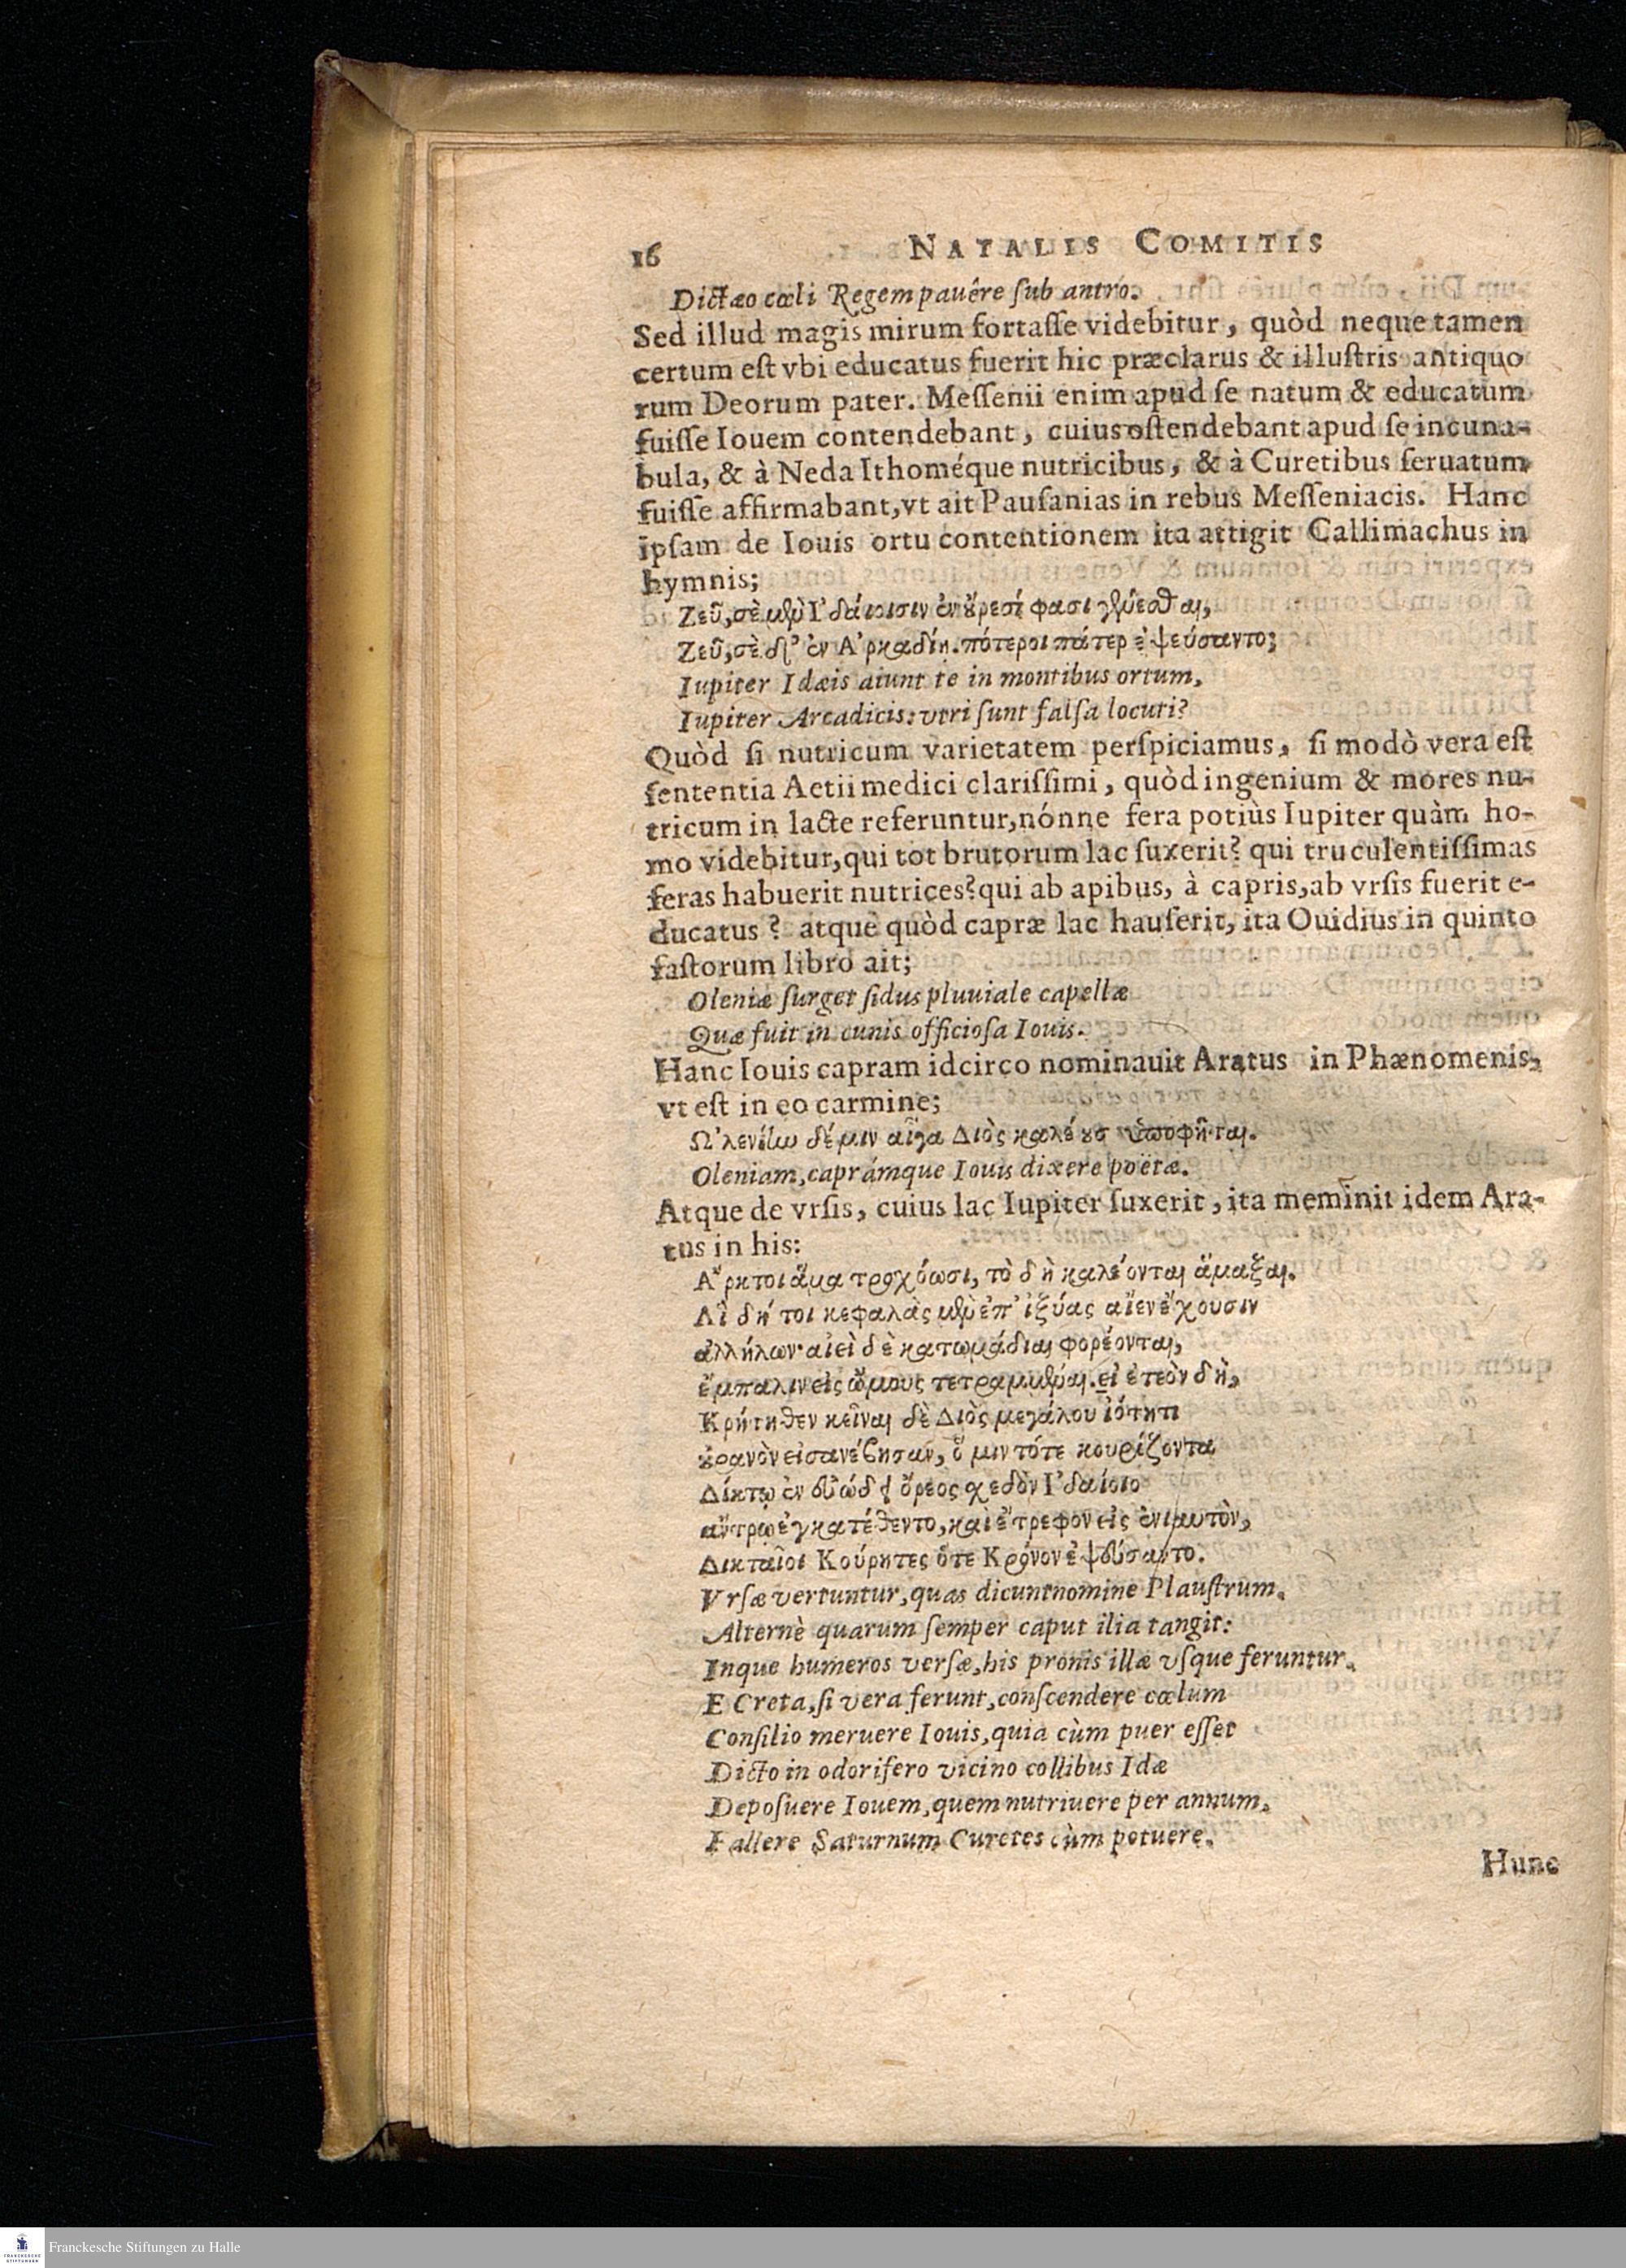 16 NATALIS COMITIS
Dictæo cœli Regem pauêre ſub antro.
Sed illud magis mirum fortaſſe videbitur, quòd neque tamen
certum eſt vbi educatus fuerit hic præclarus & illuſtris antiquo
rum Deorum pater. Meſſenii enim apud ſe natum & educatum
fuiſſe Iouem contendebant, cuius oſtendebant apud ſe incuna-
bula, & à Neda Ithoméque nutricibus, & à Curetibus ſeruatum
fuiſſe affirmabant, vt ait Pauſanias in rebus Meſſeniacis. Hanc
ipſam de Iouis ortu contentionem ita attigit Callimachus in
hymnis;
Ζεῦ, σὲ μὲν Ἰδαίοισιν ἐν ȣ́ρεσί φασι γενέσθαι,
Ζεῦ, σὲ δ' ἐν Ἀρκαδίῃ. πότεροι πάτερ ἐψεύσαντο;
Iupiter Idæis aiunt te in montibus ortum,
Iupiter Arcadicis: vtri ſunt falſa locuti?
Quòd ſi nutricum varietatem perſpiciamus, ſi modò vera eſt
ſententia Aetii medici clariſſimi, quòd ingenium & mores nu-
tricum in lacte referuntur, nónne fera potiùs Iupiter quàm ho-
mo videbitur, qui tot brutorum lac ſuxerit? qui truculentiſſimas
feras habuerit nutrices? qui ab apibus, à capris, ab vrſis fuerit e-
ducatus? atque quòd capræ lac hauſerit, ita Ouidius in quinto
faſtorum libro ait;
Oleniæ ſurget ſidus pluuiale capellæ
Quæ fuit in cunis officioſa Iouis.
Hanc Iouis capram idcirco nominauit Aratus in Phænomenis,
vt eſt in eo carmine;
Ὠλενίην δέ μιν αἶγα Διὸς καλέȣσ' ὑποφῆται.
Oleniam, caprámque Iouis dixere poëtæ.
Atque de vrſis, cuius lac Iupiter ſuxerit, ita meminit idem Ara-
tus in his:
Ἄρκτοι ἅμα τροχόωσι, τὸ δὴ καλέονται ἅμαξαι.
Αἳ δή τοι κεφαλὰς μὲν ἐπ' ἰξύας αἴεν ἔχουσιν
ἀλλήλων· αἰεὶ δὲ κατωμάδιαι φορέονται,
ἔμπαλιν εἰς ὤμους τετραμμέναι. εἰ ἐτεὸν δὴ,
Κρήτηθεν κεῖναι δὲ Διὸς μεγάλου ἰότητι
ȣ̓ρανὸν εἰσανέβησαν, ὅ μιν τότε κουρίζοντα
Δίκτῳ ἐν εὐώδει ὄρεος σχεδὸν Ἰδαίοιο
ἄντρῳ ἐγκατέθεντο, καὶ ἔτρεφον εἰς ἐνιαυτὸν,
Δικταῖοι Κούρητες ὅτε Κρόνον ἐψεύσαντο.
Vrſæ vertuntur, quas dicunt nomine Plauſtrum.
Alternè quarum ſemper caput ilia tangit:
Inque humeros verſæ, his pronis illæ vſque feruntur.
E Creta, ſi vera ferunt, conſcendere cœlum
Conſilio meruere Iouis, quia cùm puer eſſet
Dicto in odorifero vicino collibus Idæ
Depoſuere Iouem, quem nutriuere per annum.
Fallere Saturnum Curetes cùm potuere.
Hunc
Franckesche Stiftungen zu Halle